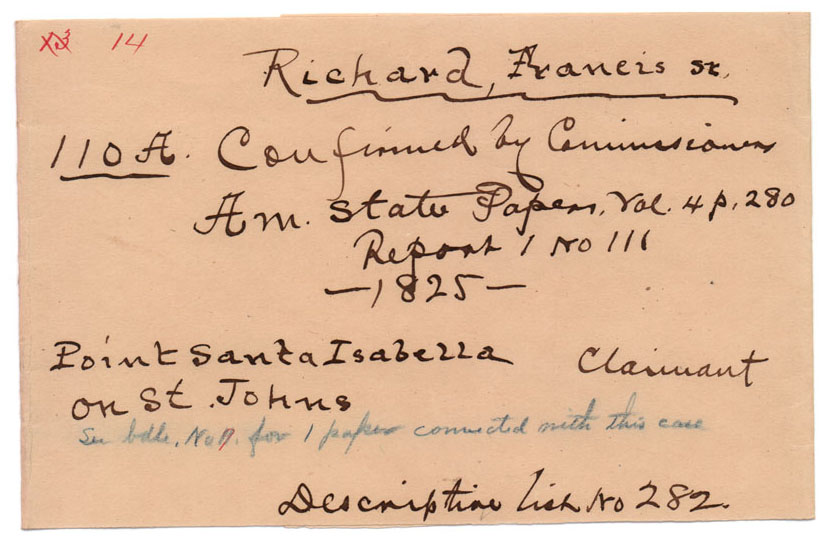 14
Richard, Francis sr.
110 A. Confirmed by Commissioners
Am. State Papers, Vol. 4 p. 280
Report 1 No 111
—1825—
Point Santa Isabella Claimant
on St. Johns
See bdle. No for 1 paper connected with this case
Descriptive list No 282.